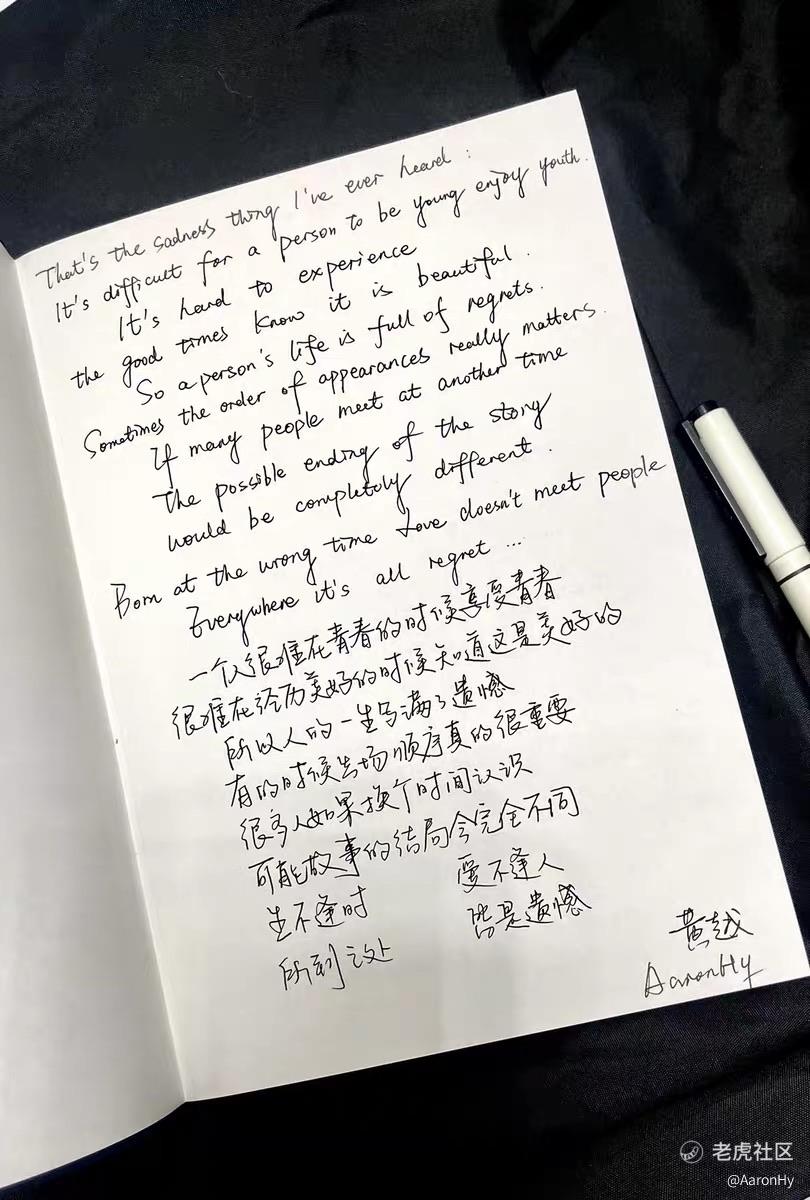 That's the sadness thing I've ever heard :
It's difficult for a person to be young enjoy youth.
It's hard to experience
the good times know it is beautiful.
So a person's life is full of regrets.
Sometimes the order of appearances really matters.
If many people meet at another time
the possible ending of the story
would be completely different.
Born at the wrong time Love doesn't meet people
Everywhere it's all regret ...
一个人很难在青春的时候享受青春
很难在经历美好的时候知道这是美好的
所以人的一生写满了遗憾
有的时候出场顺序真的很重要
很多人如果换个时间认识
可能故事的结局会完全不同
生不逢时 爱不逢人
所到之处 皆是遗憾
黄越
AaronHy
老虎社区
@AaronHy